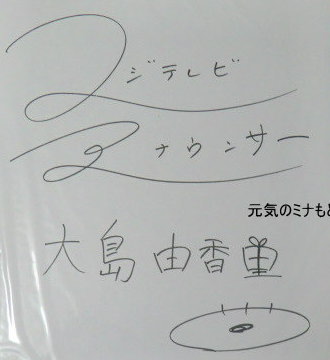 フジテレビ
アナウンサー
元気のミナも
大島由香里